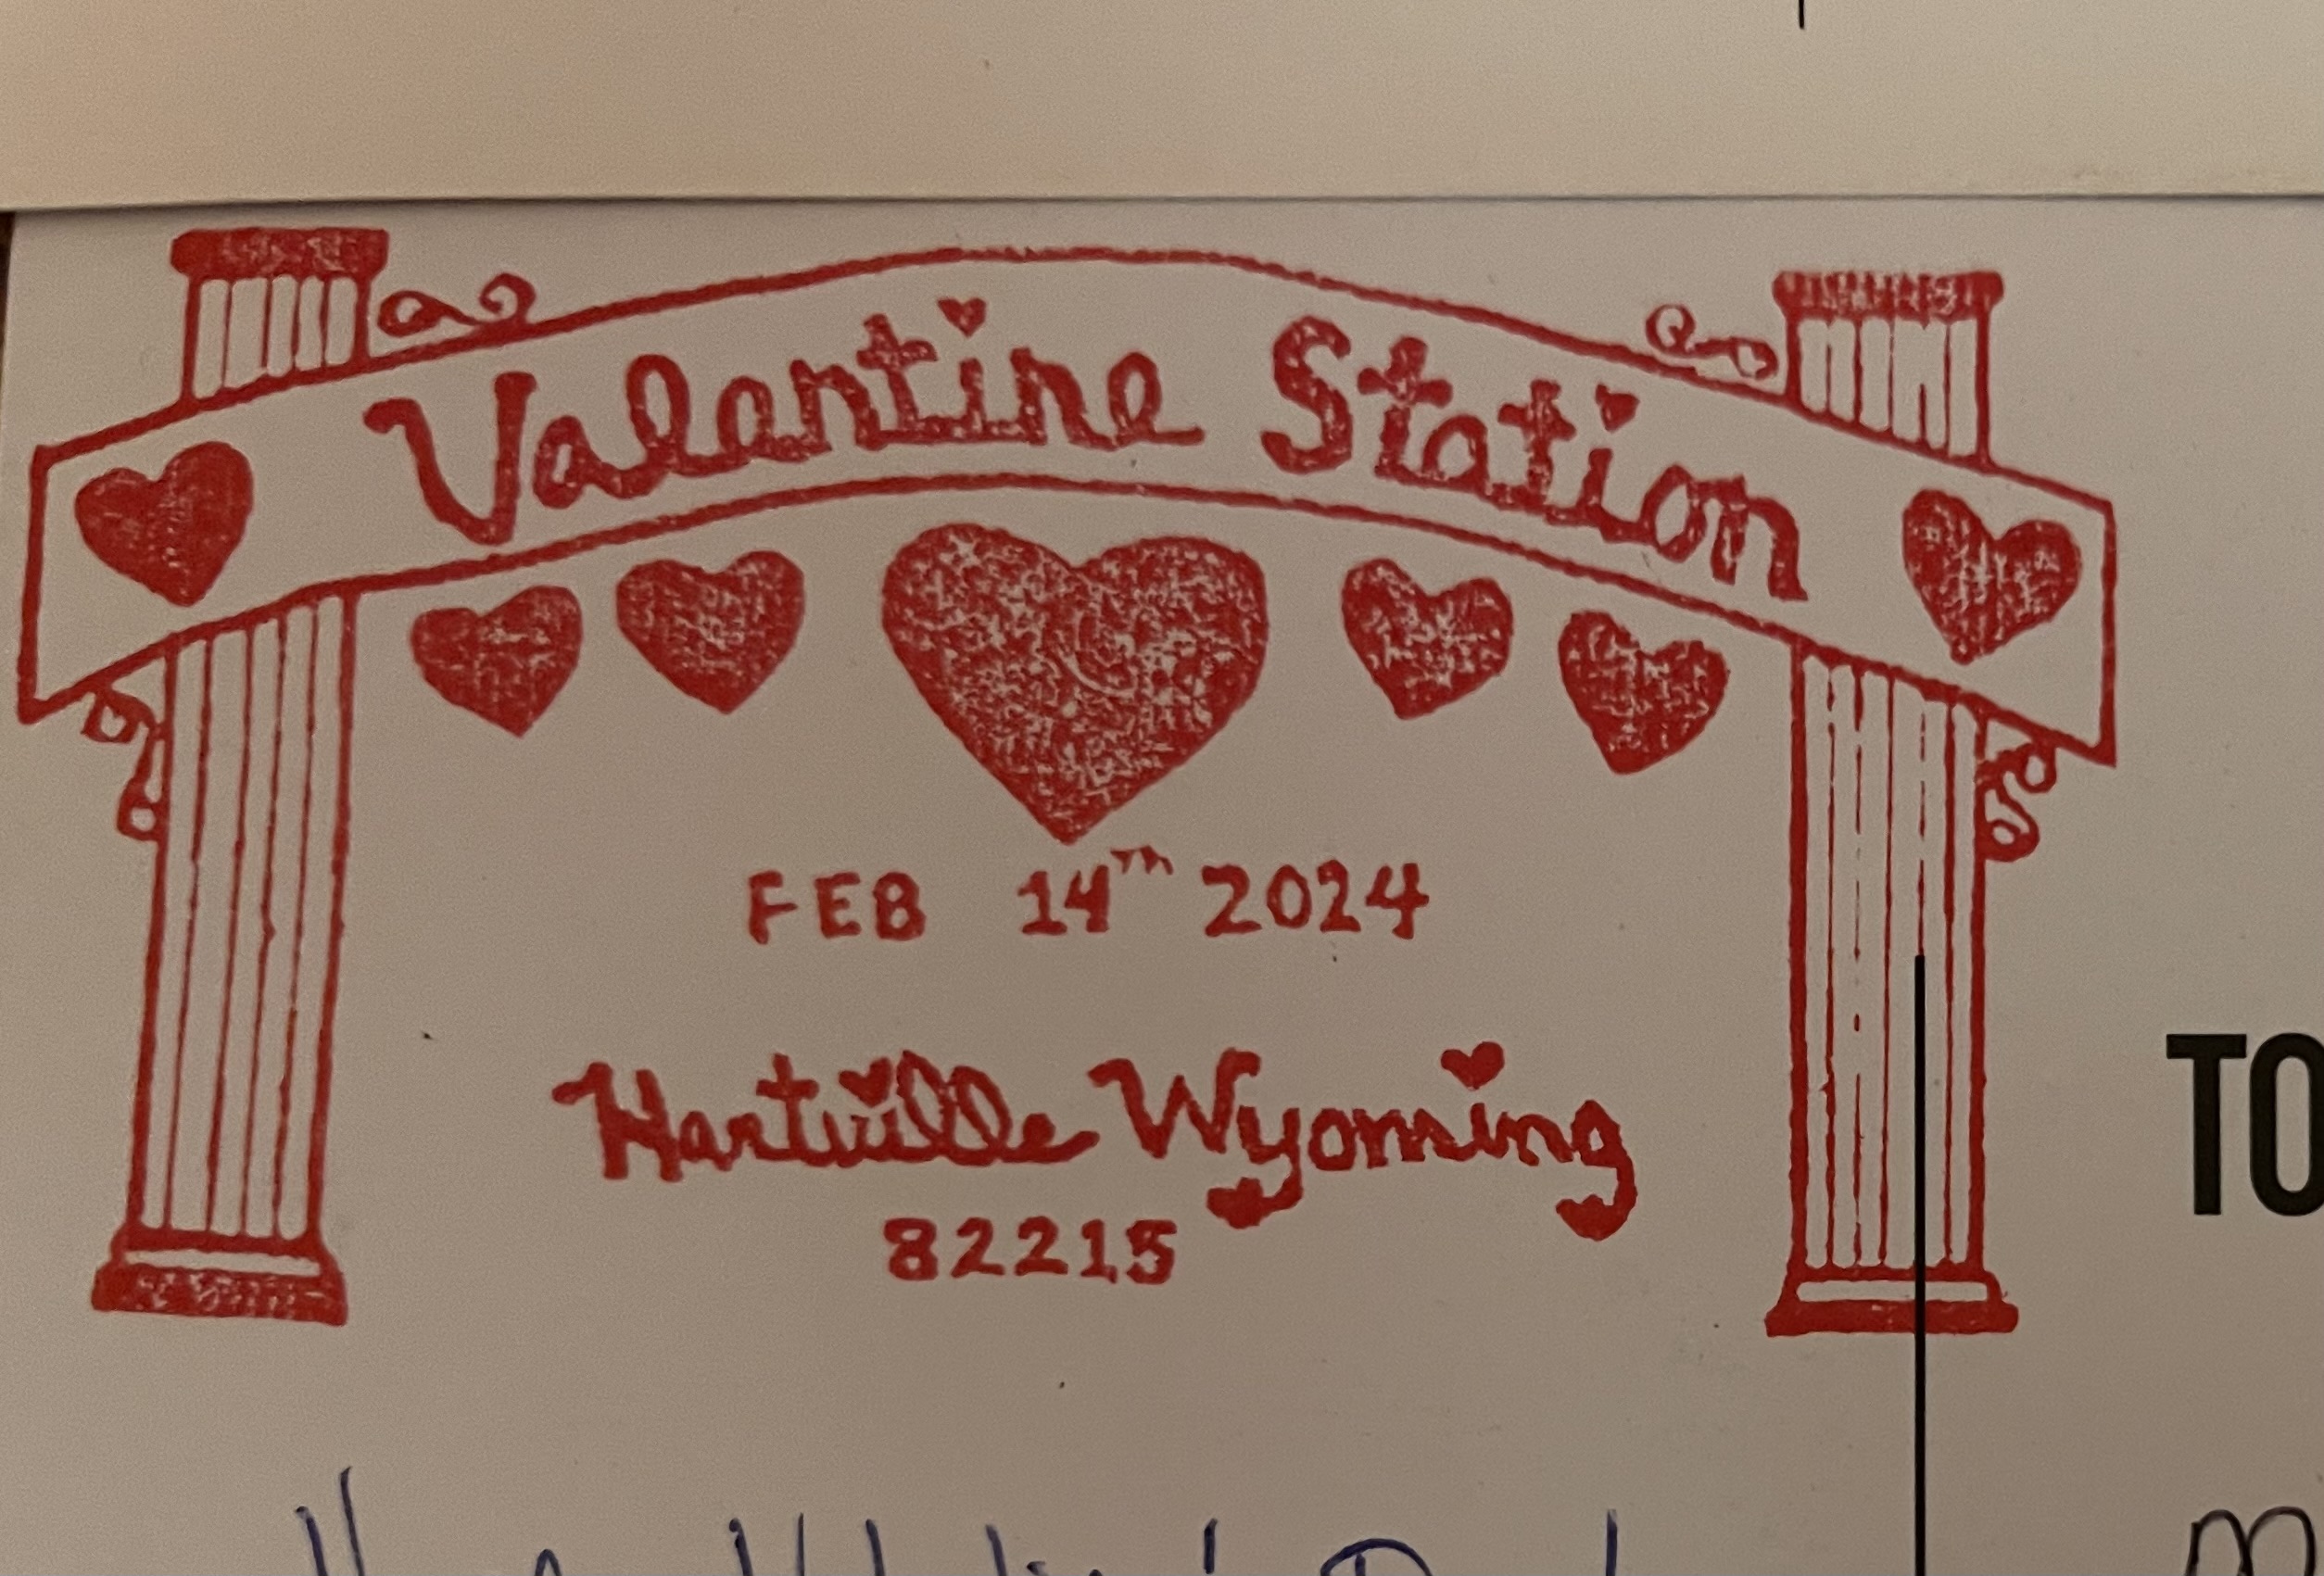 Valentine Station
FEB 14TH 2024
Hartville Wyoming
82215
TO